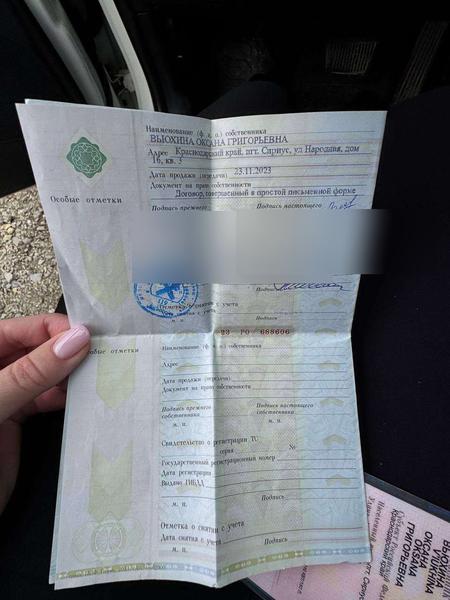 Наименование (ф. и. о.) собственника
ВЬЮХИНА ОКСАНА ГРИГОРЬЕВНА
Адрес Краснодарский край, пгт. Сириус, ул Народная, дом
16, кв. 5
Дата продажи (передачи) 23.11.2023
Документ на право собственности
Договор, совершенный в простой письменной форме
Особые отметки
Подпись прежнего
Подпись настоящего
Отметка о снятии с учета
с учета
Подпись
м. п.
23 РО 688606
Особые отметки
Наименование (ф. и. о.) собственника
Адрес
Дата продажи (передачи)
Документ на право собственности
Подпись прежнего
собственника
Подпись настоящего
собственника
м. п.
м. п.
Свидетельство о регистрации ТС
серия
№
Государственный регистрационный номер
Дата регистрации
Выдано ГИБДД
Подпись
м. п.
Отметка о снятии с учета
Дата снятия с учета
Подпись
м. п.
ВЬЮХИНА
ОКСАНА
ГРИГОРЬЕВНА